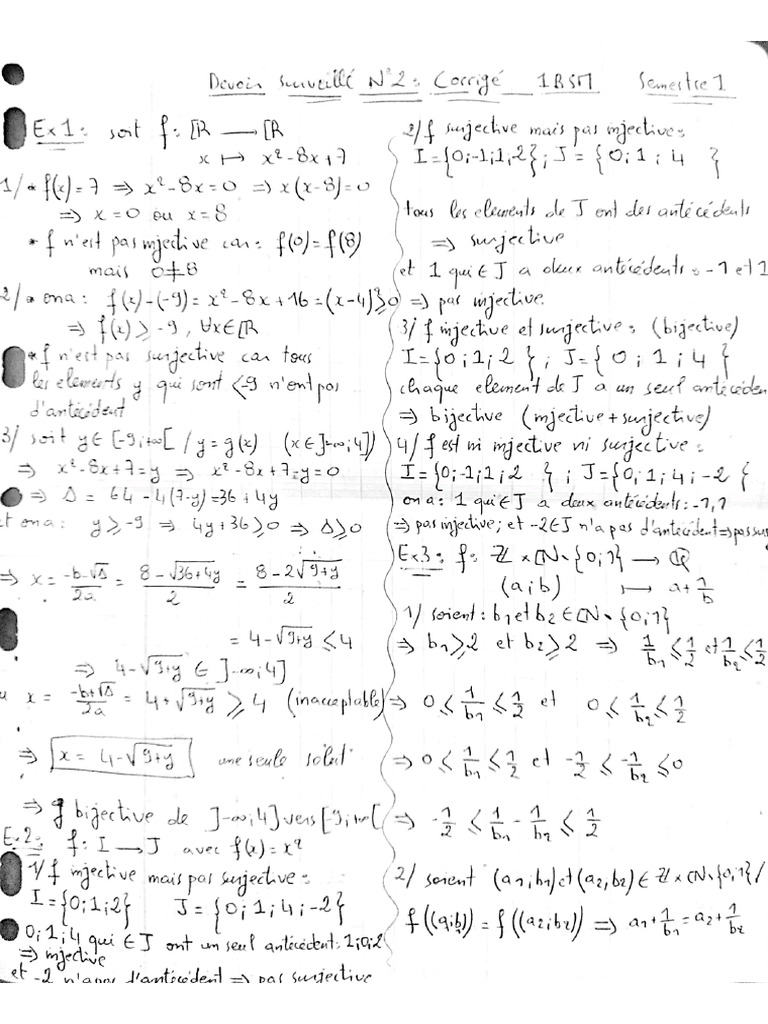 Devoir surveillé N°2 : Corrigé 1BSM Semestre 1
Ex1: soit f: IR → IR
x ↦ x²-8x+7
1/ * f(x)=7 ⇒ x²-8x=0 ⇒ x(x-8)=0
⇒ x=0 ou x=8
* f n'est pas injective car: f(0)=f(8)
mais 0≠8
2/ * on a: f(x)-(-9)=x²-8x+16=(x-4)²≥0
⇒ f(x)≥-9, ∀x∈IR
* f n'est pas surjective car tous
les elements y qui sont <-9 n'ont pas
d'antécédent
3/ soit y∈[-9;+∞[ / y=g(x) (x∈]-∞;4])
⇒ x²-8x+7=y ⇒ x²-8x+7-y=0
⇒ Δ = 64-4(7-y)=36+4y
et on a: y≥-9 ⇒ 4y+36≥0 ⇒ Δ≥0
⇒ x = (-b-√Δ)/2a = (8-√(36+4y))/2 = (8-2√(9+y))/2
= 4-√(9+y) ≤4
⇒ 4-√(9+y) ∈ ]-∞;4]
x = (-b+√Δ)/2a = 4+√(9+y) ≥ 4 (inacceptable)
⇒ x = 4-√(9+y) une seule solut°
⇒ g bijective de ]-∞;4] vers [-9;+∞[
Ex2: f: I → J avec f(x)=x²
1/ f injective mais pas surjective:
I={0;1;2} J={0;1;4;-2}
0;1;4 qui ∈ J ont un seul antécédent: 1;0;2
⇒ injective
et -2 n'a pas d'antécédent ⇒ pas surjective
2/ f surjective mais pas injective:
I={0;-1;1;2}; J={0;1;4 }
tous les elements de J ont des antécédents
⇒ surjective
et 1 qui ∈ J a deux antécédents: -1 et 1
⇒ pas injective
3/ f injective et surjective: (bijective)
I={0;1;2 }; J={0;1;4 }
chaque element de J a un seul antécéden
⇒ bijective (injective+surjective)
4/ f est ni injective ni surjective:
I={0;-1;1;2 }; J={0;1;4;-2 }
on a: 1 qui ∈ J a deux antécédents: -1,1
⇒ pas injective; et -2∈J n'a pas d'antécédent ⇒ pas sur
Ex3: f: ℤ×ℕ\{0;1} → ℚ
(a;b) ↦ a+1/b
1/ soient: b₁ et b₂ ∈ ℕ\{0;1}
⇒ b₁≥2 et b₂≥2 ⇒ 1/b₁ ≤ 1/2 et 1/b₂ ≤ 1/2
⇒ 0 ≤ 1/b₁ ≤ 1/2 et 0 ≤ 1/b₂ ≤ 1/2
⇒ 0 ≤ 1/b₁ ≤ 1/2 et -1/2 ≤ -1/b₂ ≤ 0
⇒ -1/2 ≤ 1/b₁ - 1/b₂ ≤ 1/2
2/ soient (a₁,b₁) et (a₂,b₂) ∈ ℤ×ℕ\{0;1} /
f((a;b)) = f((a₂;b₂)) ⇒ a₁+1/b₁ = a₂+1/b₂